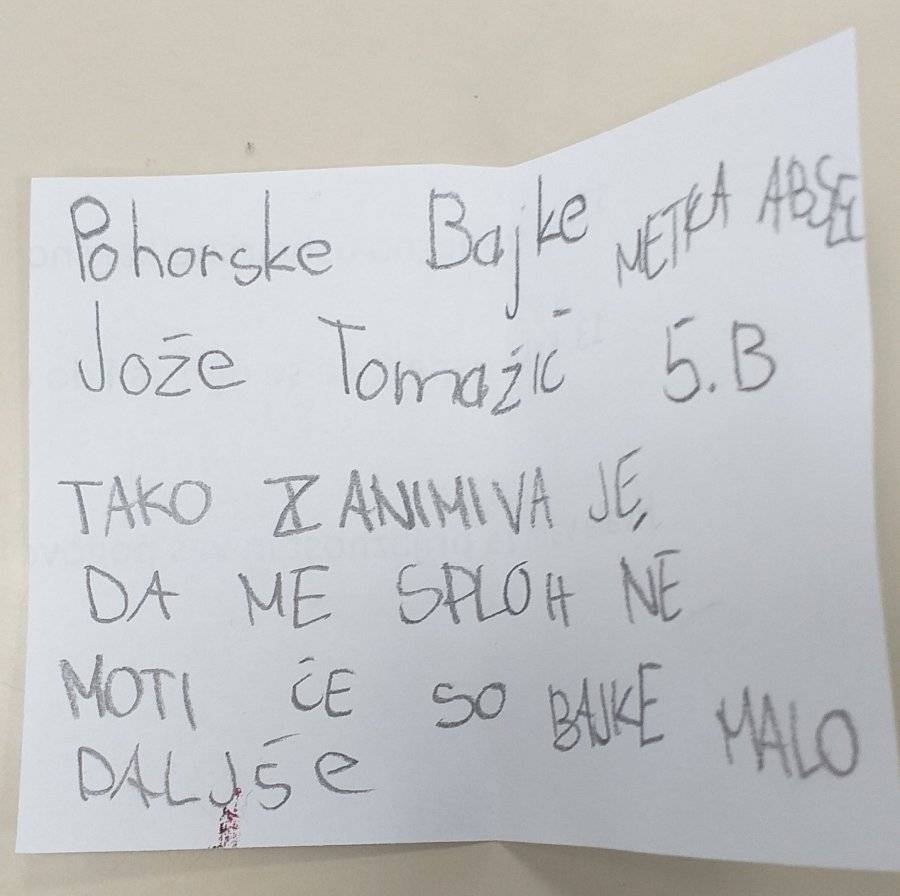 Pohorske Bajke METKA ABŠEC
Jože Tomažič 5.B
TAKO ZANIMIVA JE,
DA ME SPLOH NE
MOTI ČE SO BAJKE MALO
DALJŠe